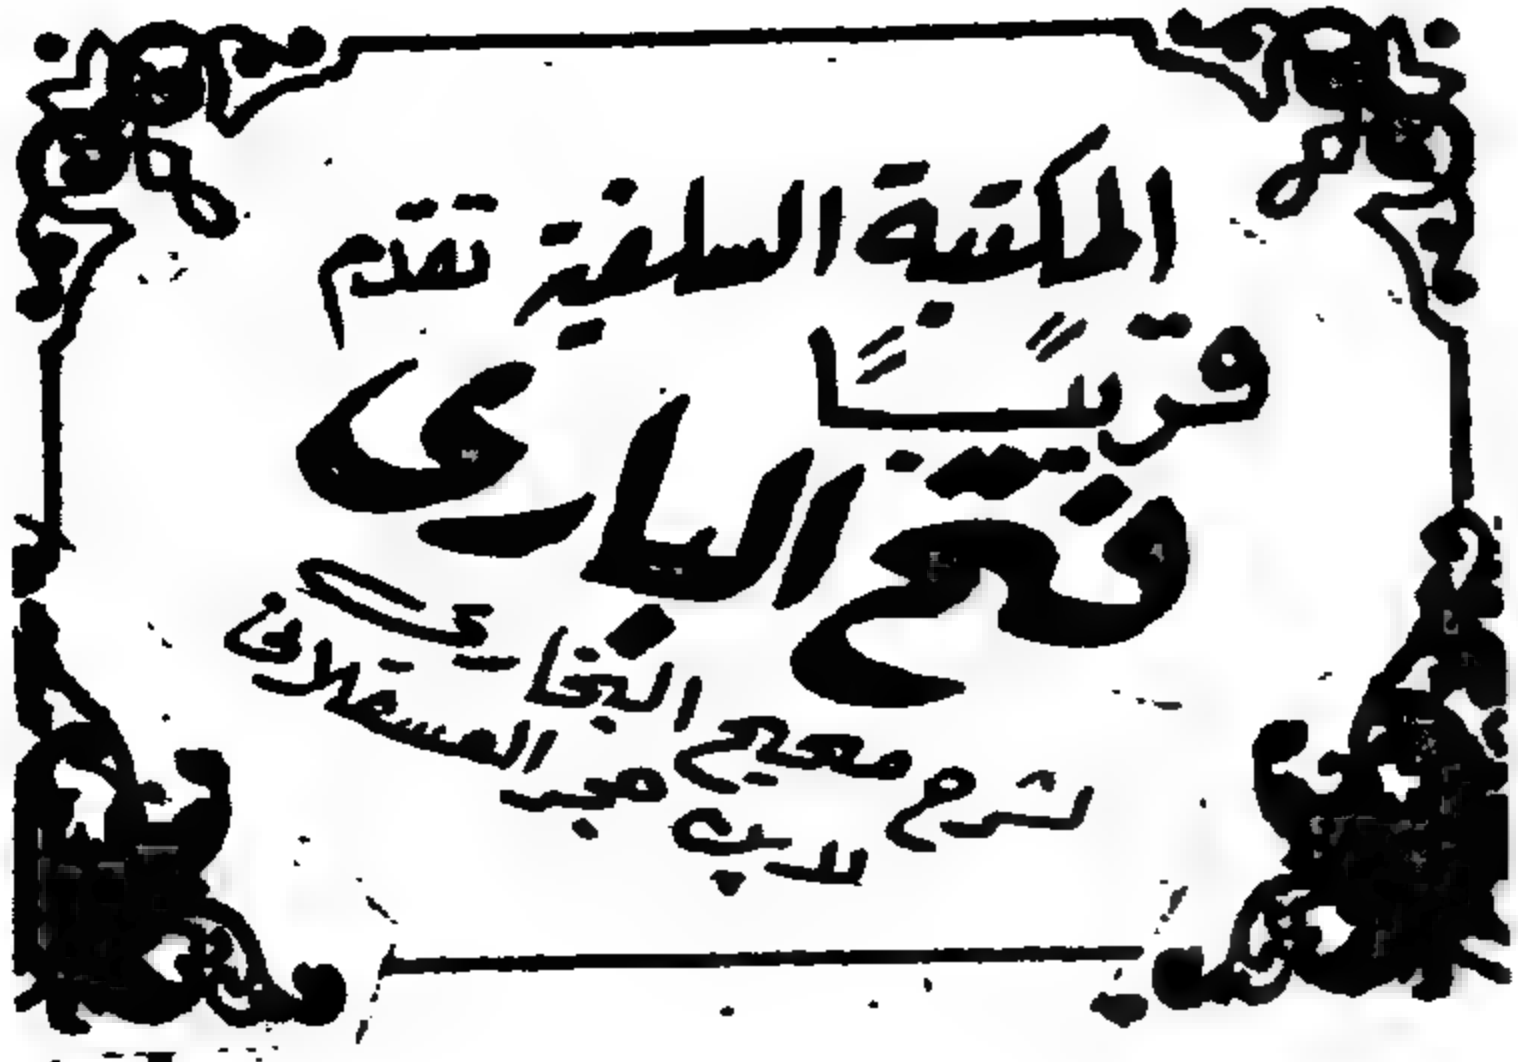 المكتبة السلفية تقدم
قريبًا
فتح البارى
لشرح صحيح البخارى
للابن حجر العسقلانى